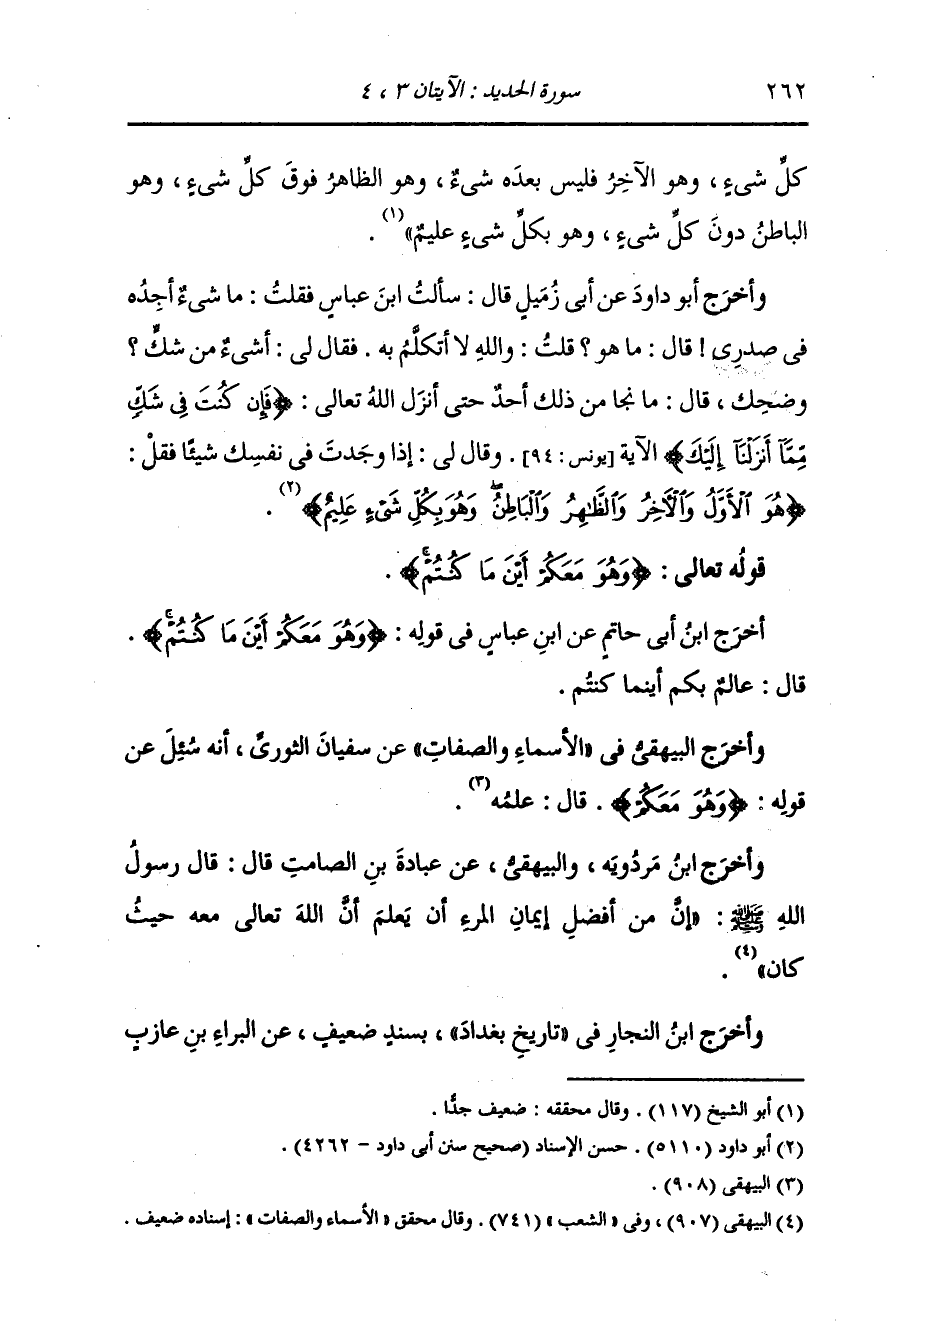 ٢٦٢ سورة الحديد : الآيتان ٣ ، ٤
كلِّ شىءٍ ، وهو الآخِرُ فليس بعدَه شىءٌ ، وهو الظاهرُ فوقَ كلِّ شىءٍ ، وهو
الباطنُ دونَ كلِّ شىءٍ ، وهو بكلِّ شىءٍ عليمٌ»(١) .
وأخرَج أبو داودَ عن أبى زُمَيلٍ قال : سألتُ ابنَ عباسٍ فقلتُ : ما شىءٌ أجِدُه
فى صدرِى ! قال : ما هو ؟ قلتُ : واللهِ لا أتكلَّمُ به . فقال لى : أشىءٌ من شكٍّ ؟
وضحِك ، قال : ما نجا من ذلك أحدٌ حتى أنزَل اللهُ تعالى : ﴿فَإِن كُنتَ فِى شَكٍّ
مِّمَّآ أَنزَلْنَآ إِلَيْكَ﴾ الآية [يونس : ٩٤] . وقال لى : إذا وجَدتَ فى نفسِك شيئًا فقلْ :
﴿هُوَ ٱلْأَوَّلُ وَٱلْآخِرُ وَٱلظَّٰهِرُ وَٱلْبَاطِنُۖ وَهُوَ بِكُلِّ شَىْءٍ عَلِيمٌ﴾(٢) .
قولُه تعالى : ﴿وَهُوَ مَعَكُمْ أَيْنَ مَا كُنتُمْۚ﴾ .
أخرَج ابنُ أبى حاتمٍ عن ابنِ عباسٍ فى قولِه : ﴿وَهُوَ مَعَكُمْ أَيْنَ مَا كُنتُمْۚ﴾ .
قال : عالمٌ بكم أينما كنتُم .
وأخرَج البيهقىُّ فى «الأسماءِ والصفاتِ» عن سفيانَ الثورىِّ ، أنه سُئِلَ عن
قولِه : ﴿وَهُوَ مَعَكُمْ﴾ . قال : علمُه(٣) .
وأخرَج ابنُ مَردُويَه ، والبيهقىُّ ، عن عبادةَ بنِ الصامتِ قال : قال رسولُ
اللهِ ﷺ : «إنَّ من أفضلِ إيمانِ المرءِ أن يَعلمَ أنَّ اللهَ تعالى معه حيثُ
كان»(٤) .
وأخرَج ابنُ النجارِ فى «تاريخِ بغدادَ» ، بسندٍ ضعيفٍ ، عن البراءِ بنِ عازبٍ
(١) أبو الشيخ (١١٧) . وقال محققه : ضعيف جدًّا .
(٢) أبو داود (٥١١٠) . حسن الإسناد (صحيح سنن أبى داود - ٤٢٦٢) .
(٣) البيهقى (٩٠٨) .
(٤) البيهقى (٩٠٧) ، وفى «الشعب» (٧٤١) . وقال محقق «الأسماء والصفات» : إسناده ضعيف .